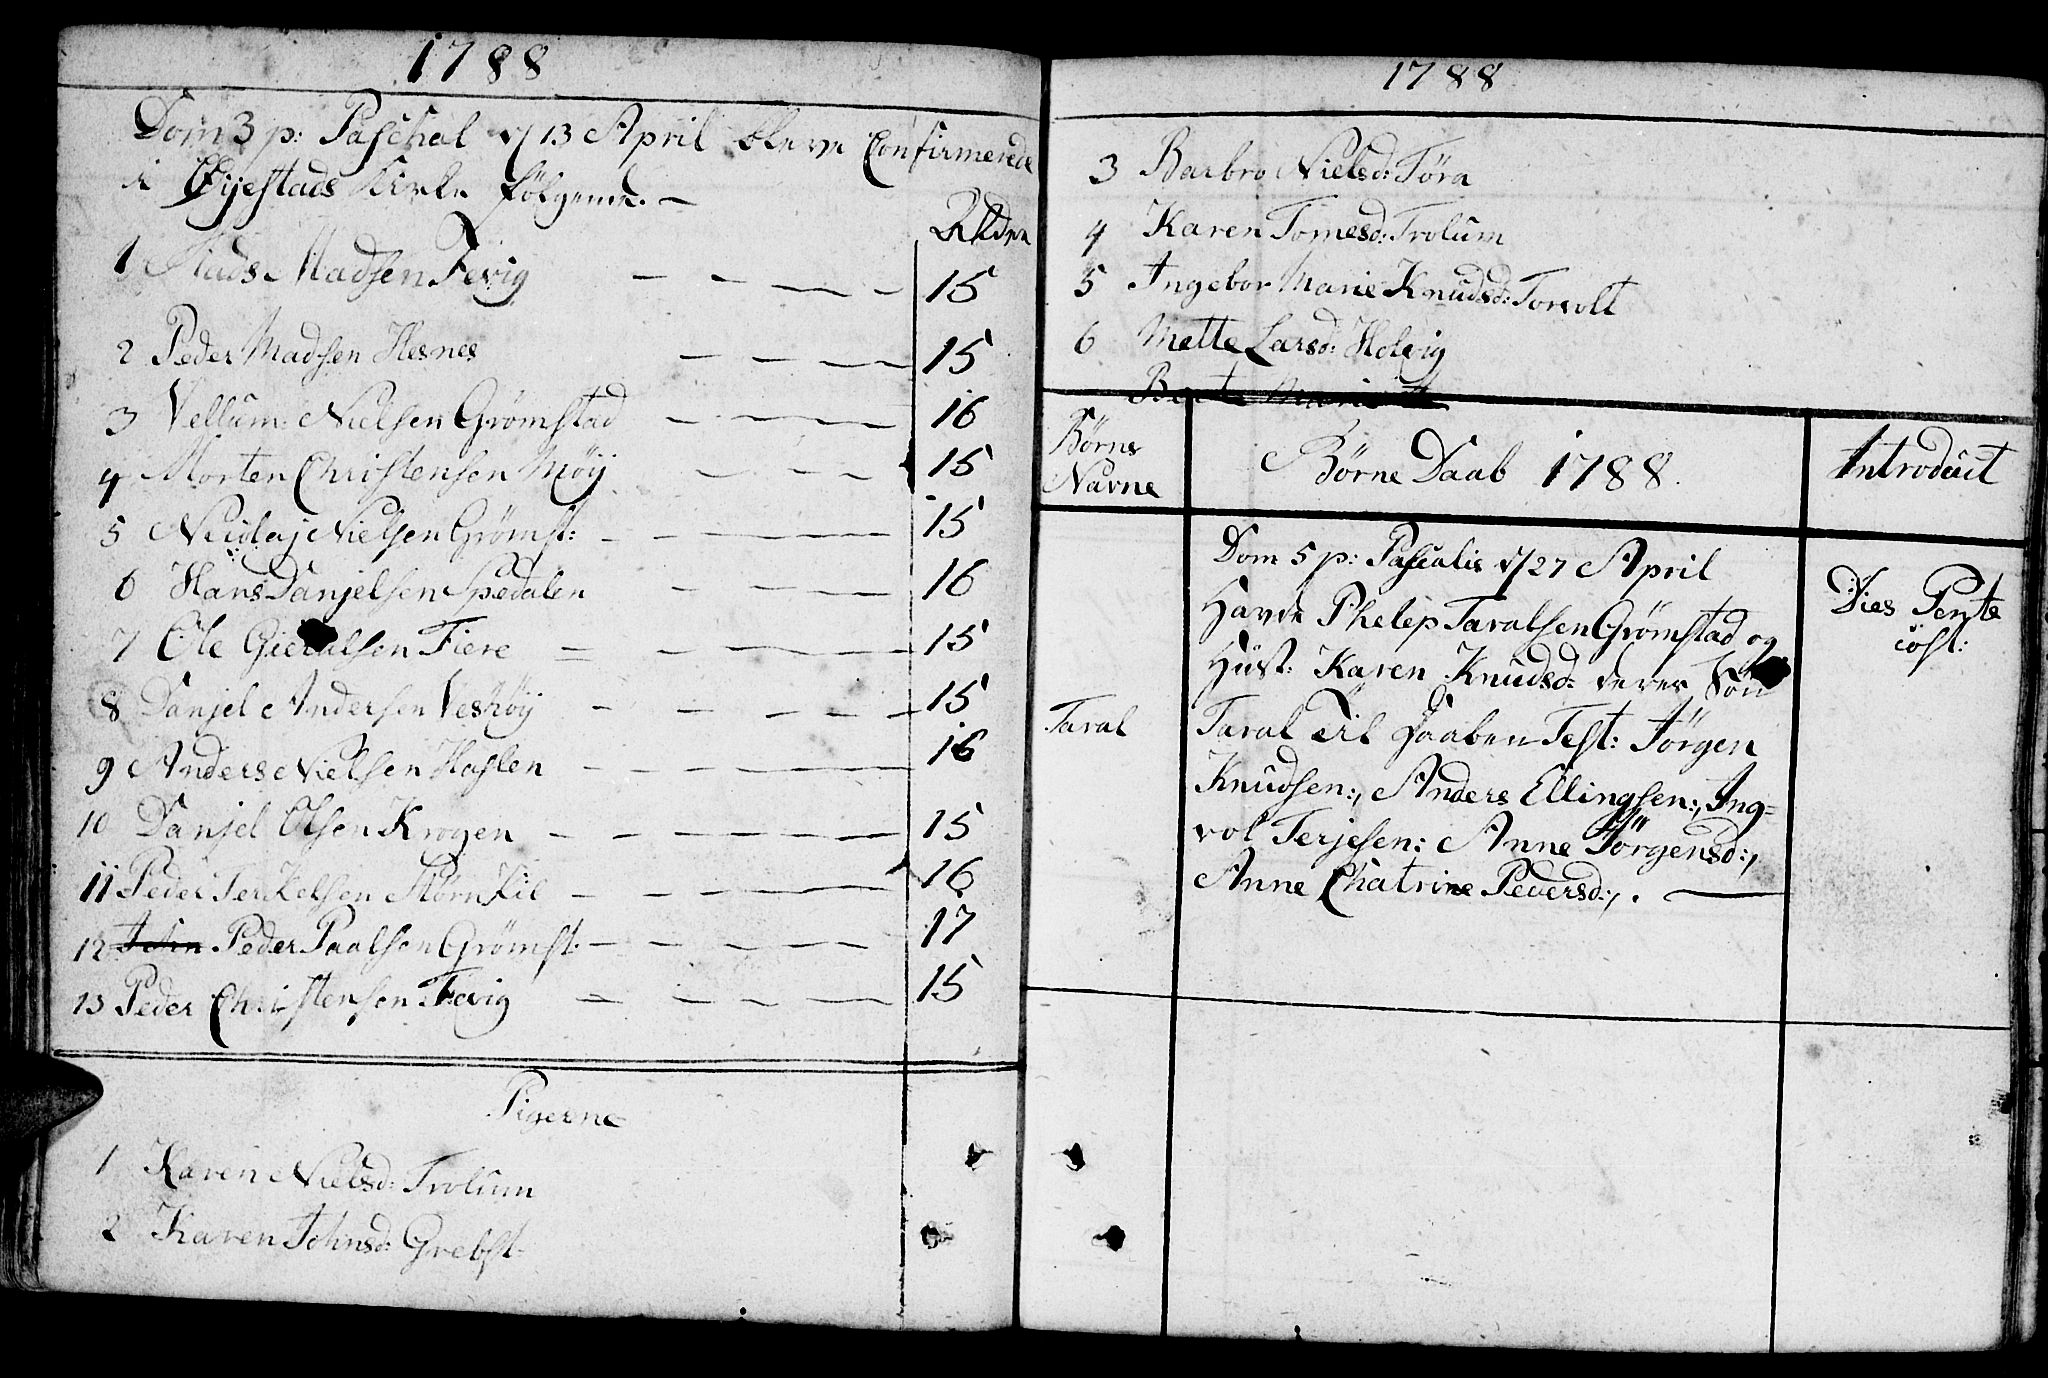 1788
Dom 3 p: Paschal d/ 13 April bleve Confirmerede
i Øijestads Kirke følgende. —
Alder
1 Mads Madsen Fevig — — — — 15
2 Peder Madsen Hesnes — — — — 15
3 Vellum: Nielsen Grömstad — — — — 16
4 Morten Christensen Möij — — — 15
5 Nicolaj Nielsen Grömst: — — — — 15
6 Hans Danjelsen Spedalen — — — — 16
7 Ole Gierulsen Fiere — — — — 15
8 Danjel Andersen Veshöij — — — — — 15
9 Anders Nielsen Haslen — — — — — 16
10 Danjel Olsen Krogen — — — — — 15
11 Peder Terkelsen Störn Kil — — — — — 16
12 John Peder Paalsen Grömst. — — — — — 17
13 Peder Christensen Fevig — — — — — 15
Pigerne
1 Karen Nielsd: Trolum
2 Karen Johnsd: Grebst
1788
3 Barbro Nielsd: Töra
4 Karen Tomesd: Trolum
5 Ingebor Marie Knudsd: Torvolt
6 Mette Larsd: Holvig
Berte Marie
Börns
Navne
Börne Daab 1788.
Introduit
Dom 5 p: Pascalis d/ 27 April
Havde Phelep Taralsen Grömstad og
Hust: Karen Knudsd: deres Sön
Taral Til Daaben Test: Jörgen
Knudsen:, Anders Ellingsen:, Ing=
vol Terjesen: Anne Jörgensd:,
Anne Chatrine Pedersd:,. —
Taral
Dies Pente
cost: